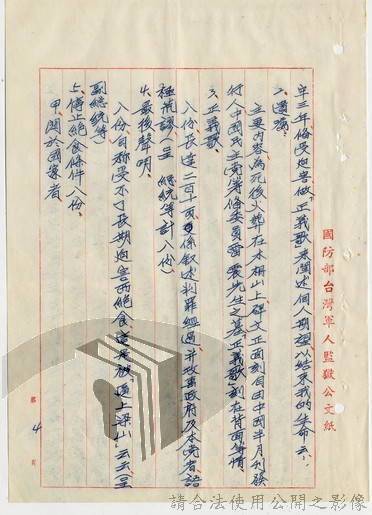 年三年俗受迫害做「正義歌」來闡述個人期望以結束我的生命云。
2、遺囑。
主要內容為死後火葬在木柵山上碑文正面刻自由中國半月刊發
行人中國民主黨籌備委員雷震先生之墓「正義歌」刻在背面等情
3、正義歌。
八份長達二百十一頁係敘述判罪經過並攻擊政府及本黨者諸
種荒謬(呈 總統等計八份)
4、最後聲明。
八份自称受不了長期迫害而絕食這是被「逼上梁山」云云(呈
副總統等)
5、停止絕食條件八份。
甲、關於國家者
國防部台灣軍人監獄公文紙
第 4 頁
請合法使用公開之影像